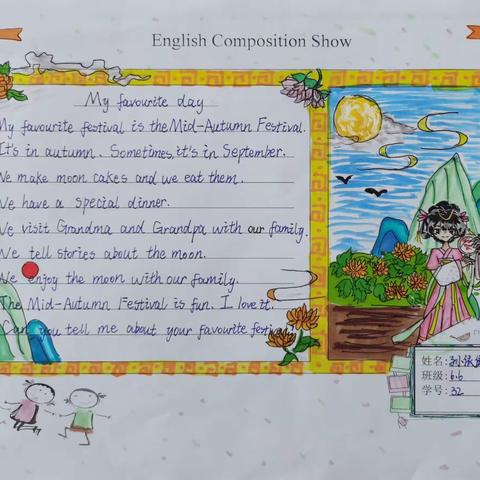 English Composition Show
My favourite day
My favourite festival is the Mid-Autumn Festival.
It's in autumn. Sometimes, it's in September.
We make moon cakes and we eat them.
We have a special dinner.
We visit Grandma and Grandpa with our family.
We tell stories about the moon.
We enjoy the moon with our family.
The Mid-Autumn Festival is fun. I love it.
Can you tell me about your favourite festival?
姓名:
班级: 6.6
学号: 32